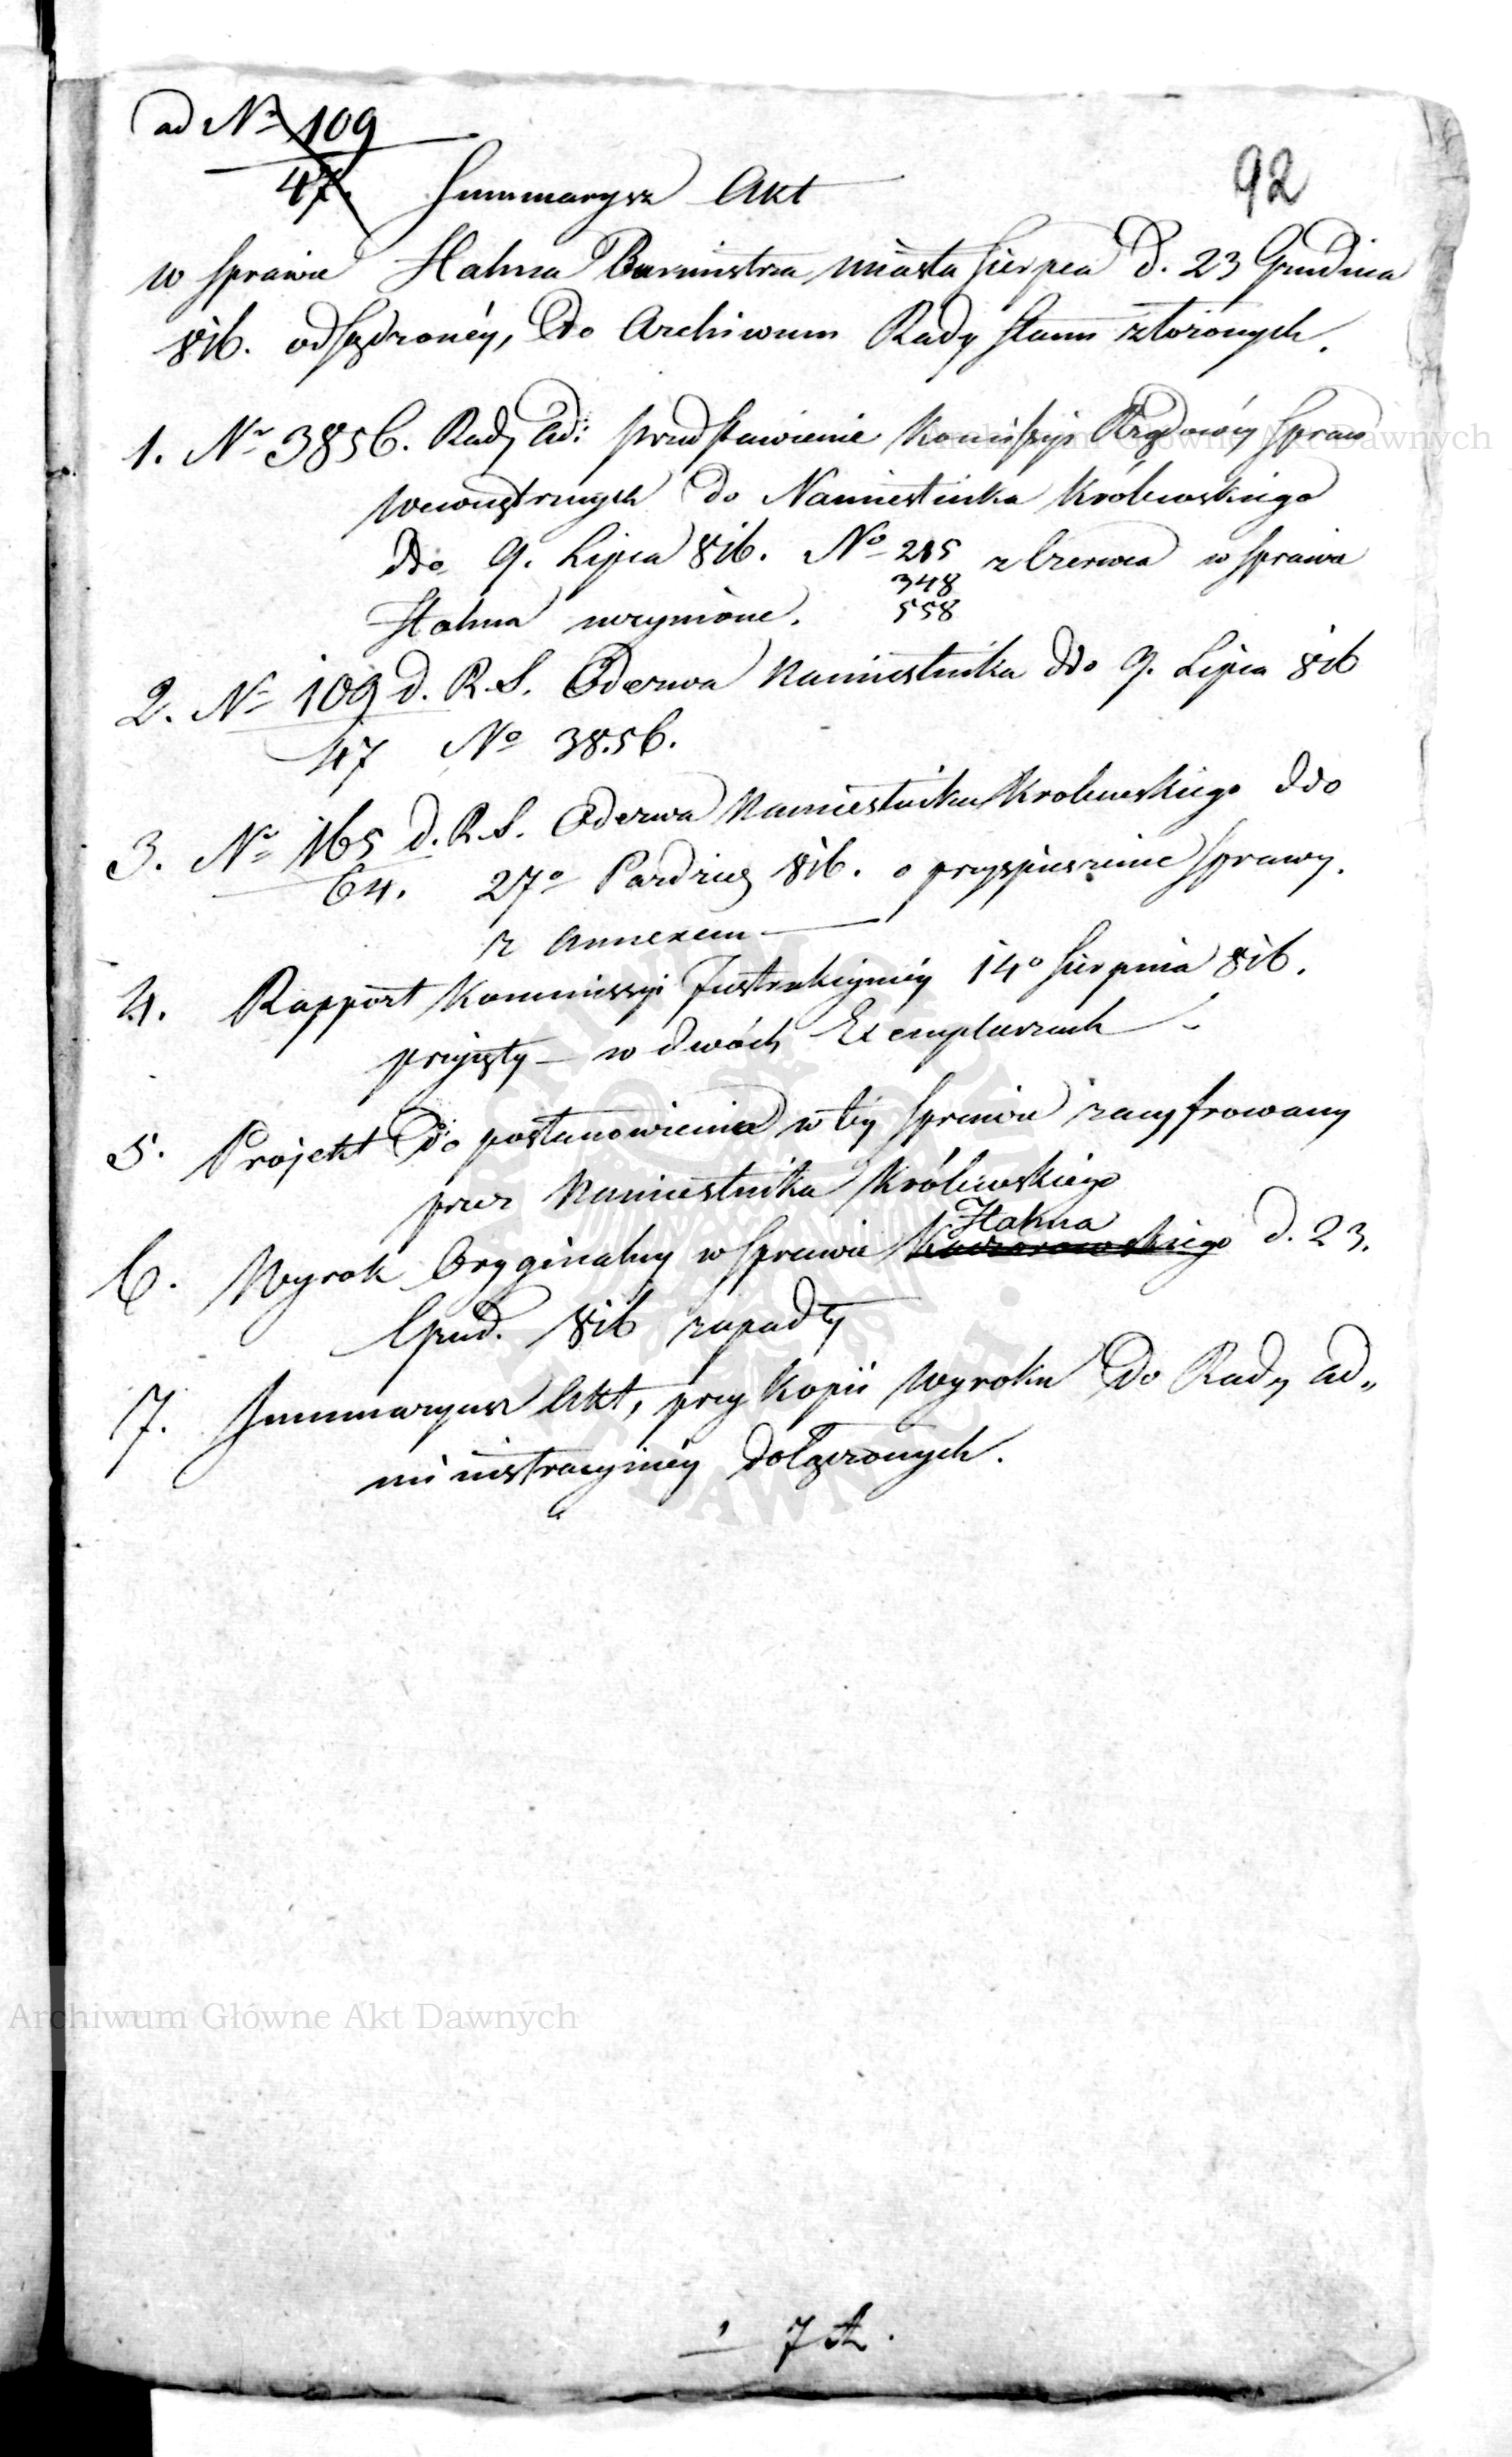 ad Nº 109
47.
92
Summarysz Akt
w sprawie Hahna Burmistrza miasta Sierpca d. 23 Grudnia
816. odsądzonéy, do Archiwum Rady Stanu złożonych.
1. Nr 3856. Rady Ad: przedstawienie Komissyi Rządowéy Spraw
Wewnętrznych do Namiestnika Królewskiego
ddo 9. Lipca 816. Nº 215 z Czerwca w sprawie
348
Hahna uczynione. 558
2. Nº 109 d. R. S. Odezwa Namiestnika ddo 9. Lipca 816
47 Nº 3856.
3. Nº 165 d. R. S. Odezwa Namiestnika Krolewskiego ddo
64. 27º Paźdz 816. o przyspieszenie sprawy.
z Annexem
4. Rapport Kommissyi Instrukcyinéy 14º Sierpnia 816.
przyięty — w dwóch Exemplarzach
5. Projekt do postanowienia w téy sprawie zacyfrowany
przez Namiestnika Królewskiego
Hahna
6. Wyrok Oryginalny w sprawie d. 23.
Grud. 816 zapadły
7. Summaryusz Akt, przy kopii Wyroku do Rady ad„
ministracyinéy dołączonych.
7
Archiwum Główne Akt Dawnych
Archiwum Główne Akt Dawnych